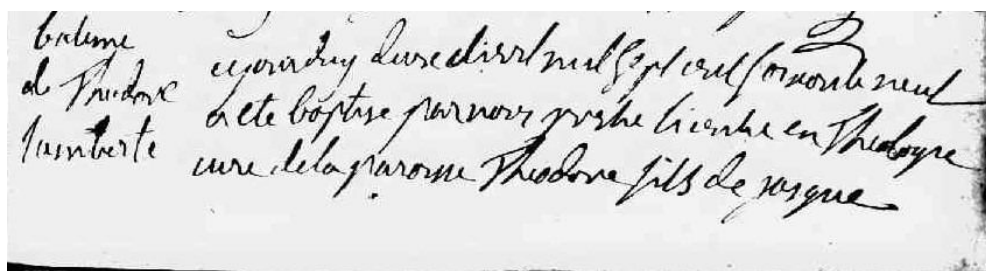 bateme
de Theodore
lamberte
ajourduy duxe avril mil sept cent soixante neuf
a ete baptise par nous prestre licentie en Theologie
cure de la paroisse Theodore fils de jasque